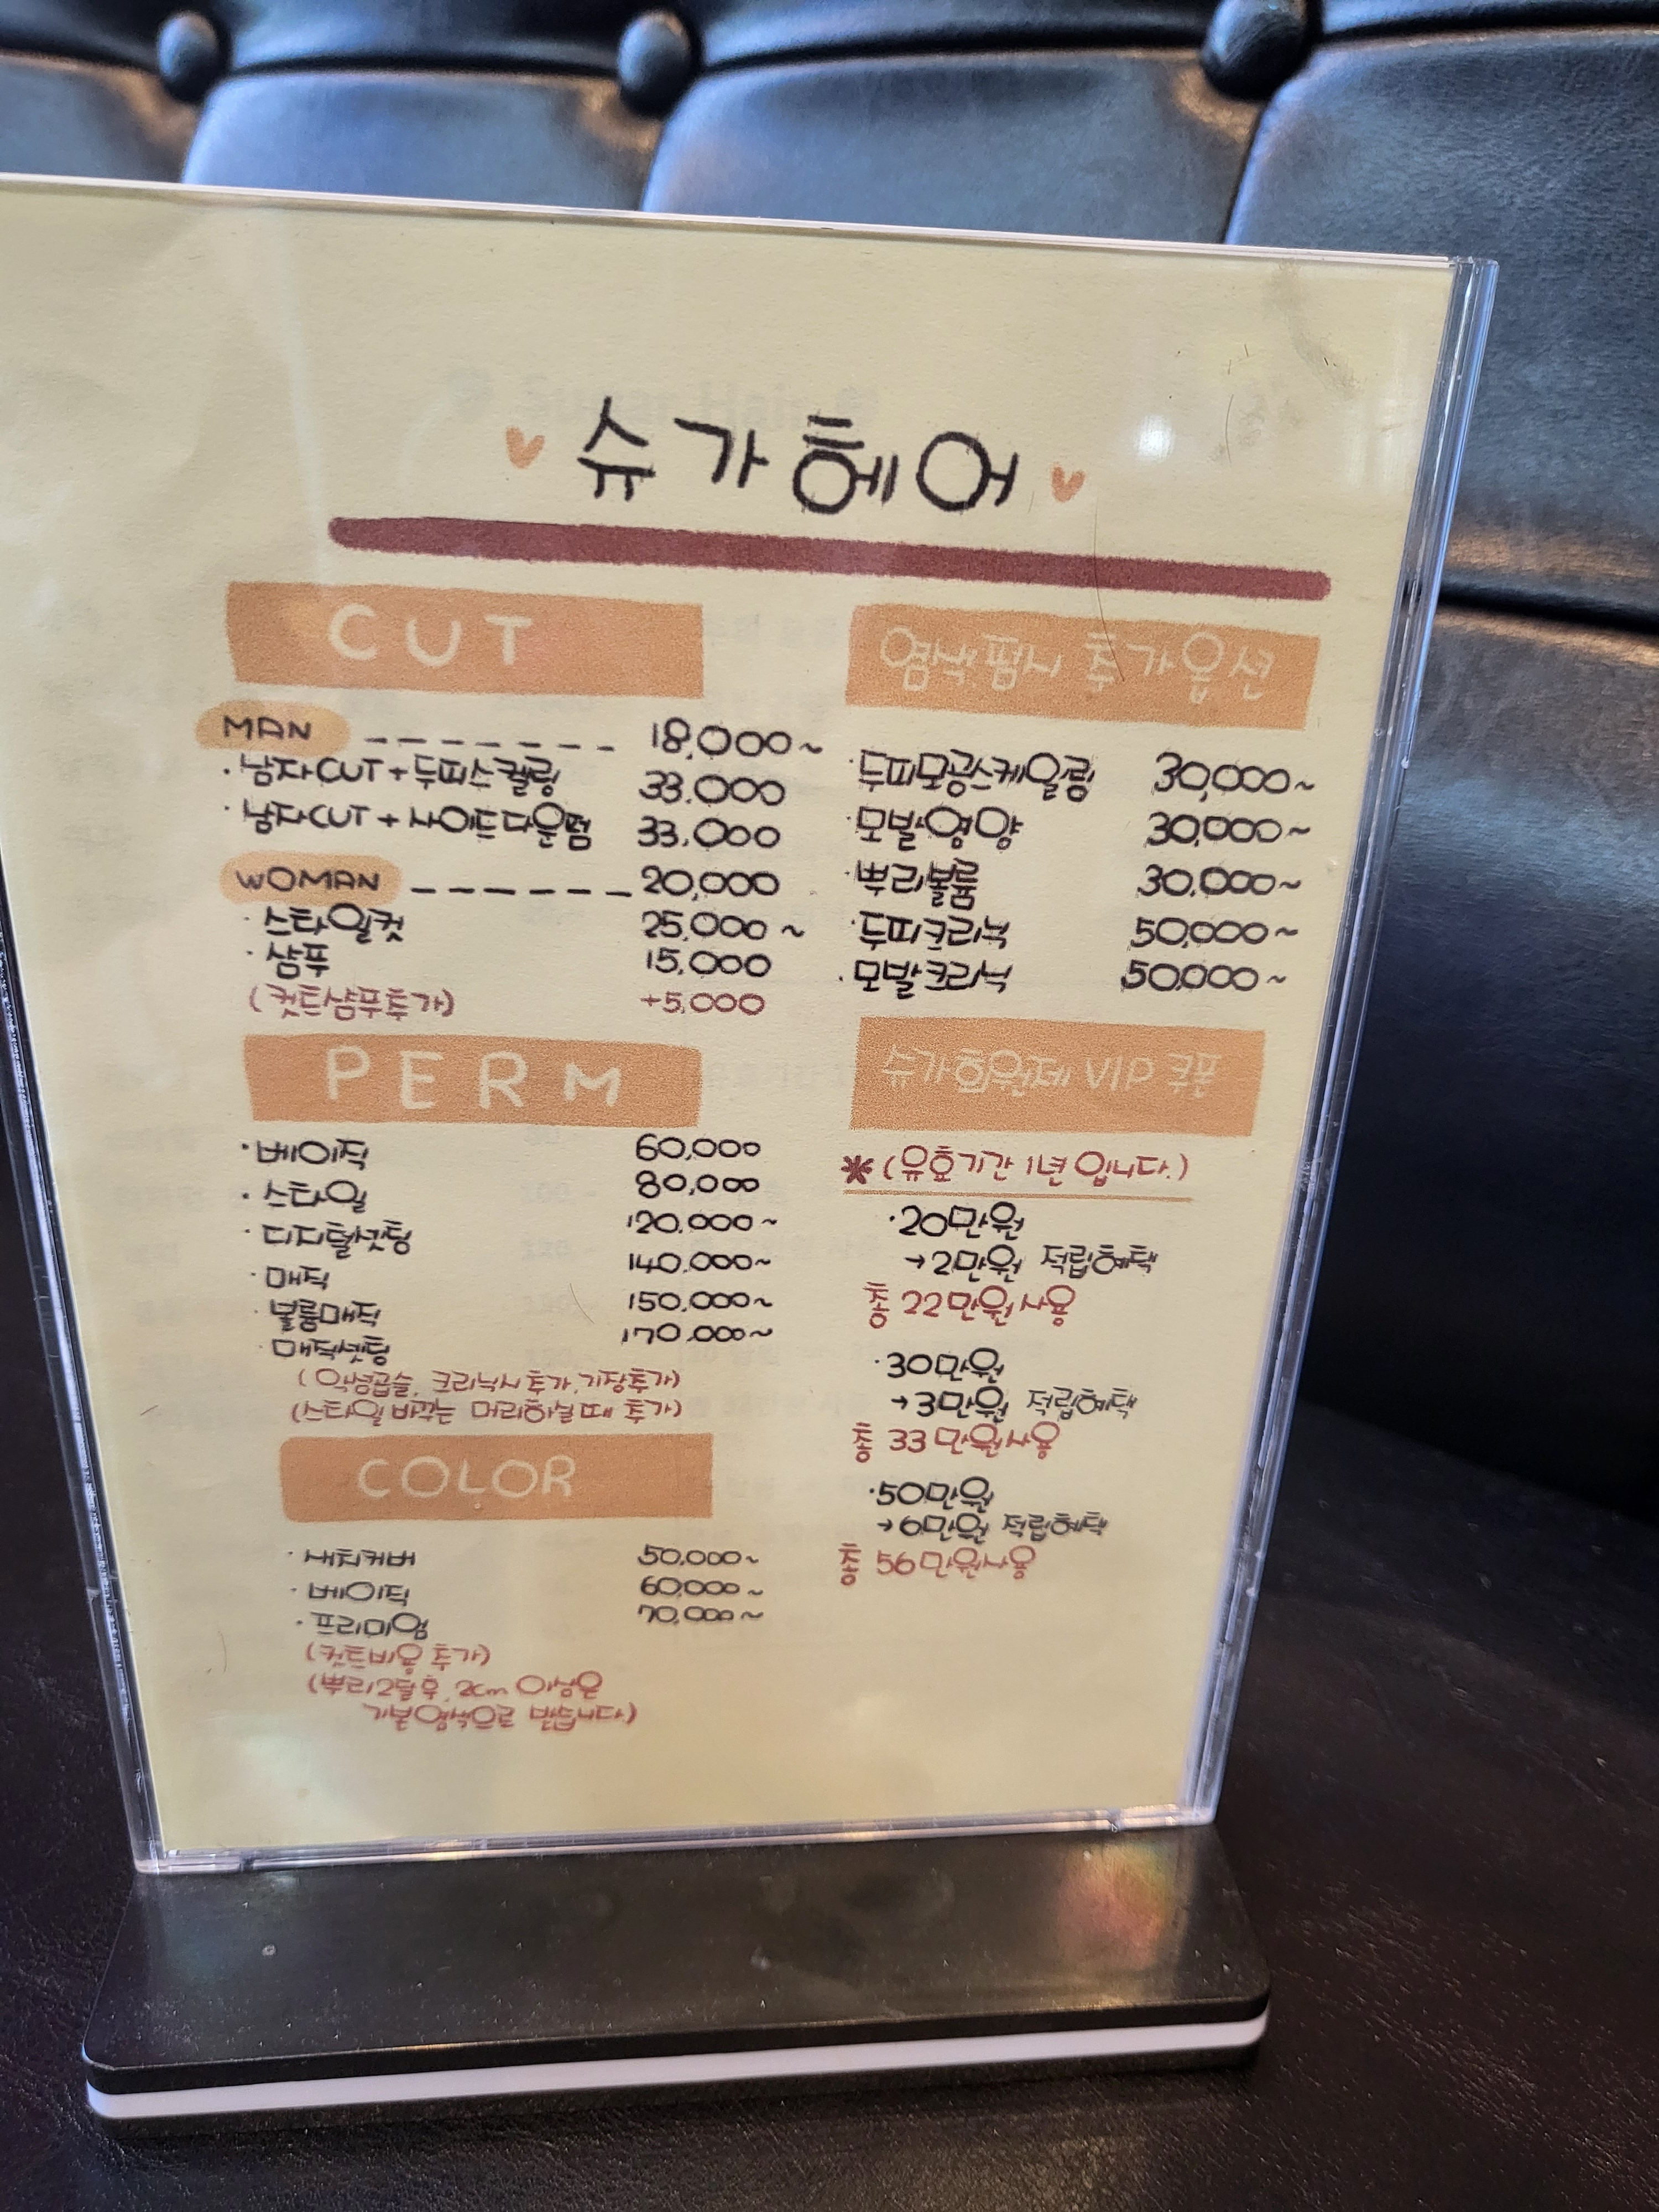 슈가헤어
CUT
MAN ------- 18,000~
·남자CUT+두피스켈링 33.000
·남자CUT+사이드다운펌 33.000
WOMAN ------ 20,000
·스타일컷 25,000~
·샴푸 15,000
(컷트샴푸추가) +5,000
PERM
·베이직 60,000
·스타일 80,000
·디지털셋팅 120.000~
·매직 140.000~
·볼륨매직 150.000~
·매직셋팅 170.000~
(악성곱슬, 크리닉시 추가, 기장추가)
(스타일 바꾸는 머리하실때 추가)
COLOR
·새치커버 50,000~
·베이직 60,000~
·프리미엄 70,000~
(컷트비용 추가)
(뿌리2달후, 2cm 이상은
기본염색으로 받습니다)
염색, 펌시 추가옵션
·두피모공스케일링 30,000~
·모발영양 30,000~
·뿌리볼륨 30,000~
·두피크리닉 50,000~
·모발크리닉 50,000~
슈가회원제 VIP 쿠폰
*(유효기간 1년 입니다.)
·20만원
→2만원 적립혜택
총 22만원사용
·30만원
→3만원 적립혜택
총 33만원사용
·50만원
→6만원 적립혜택
총 56만원사용